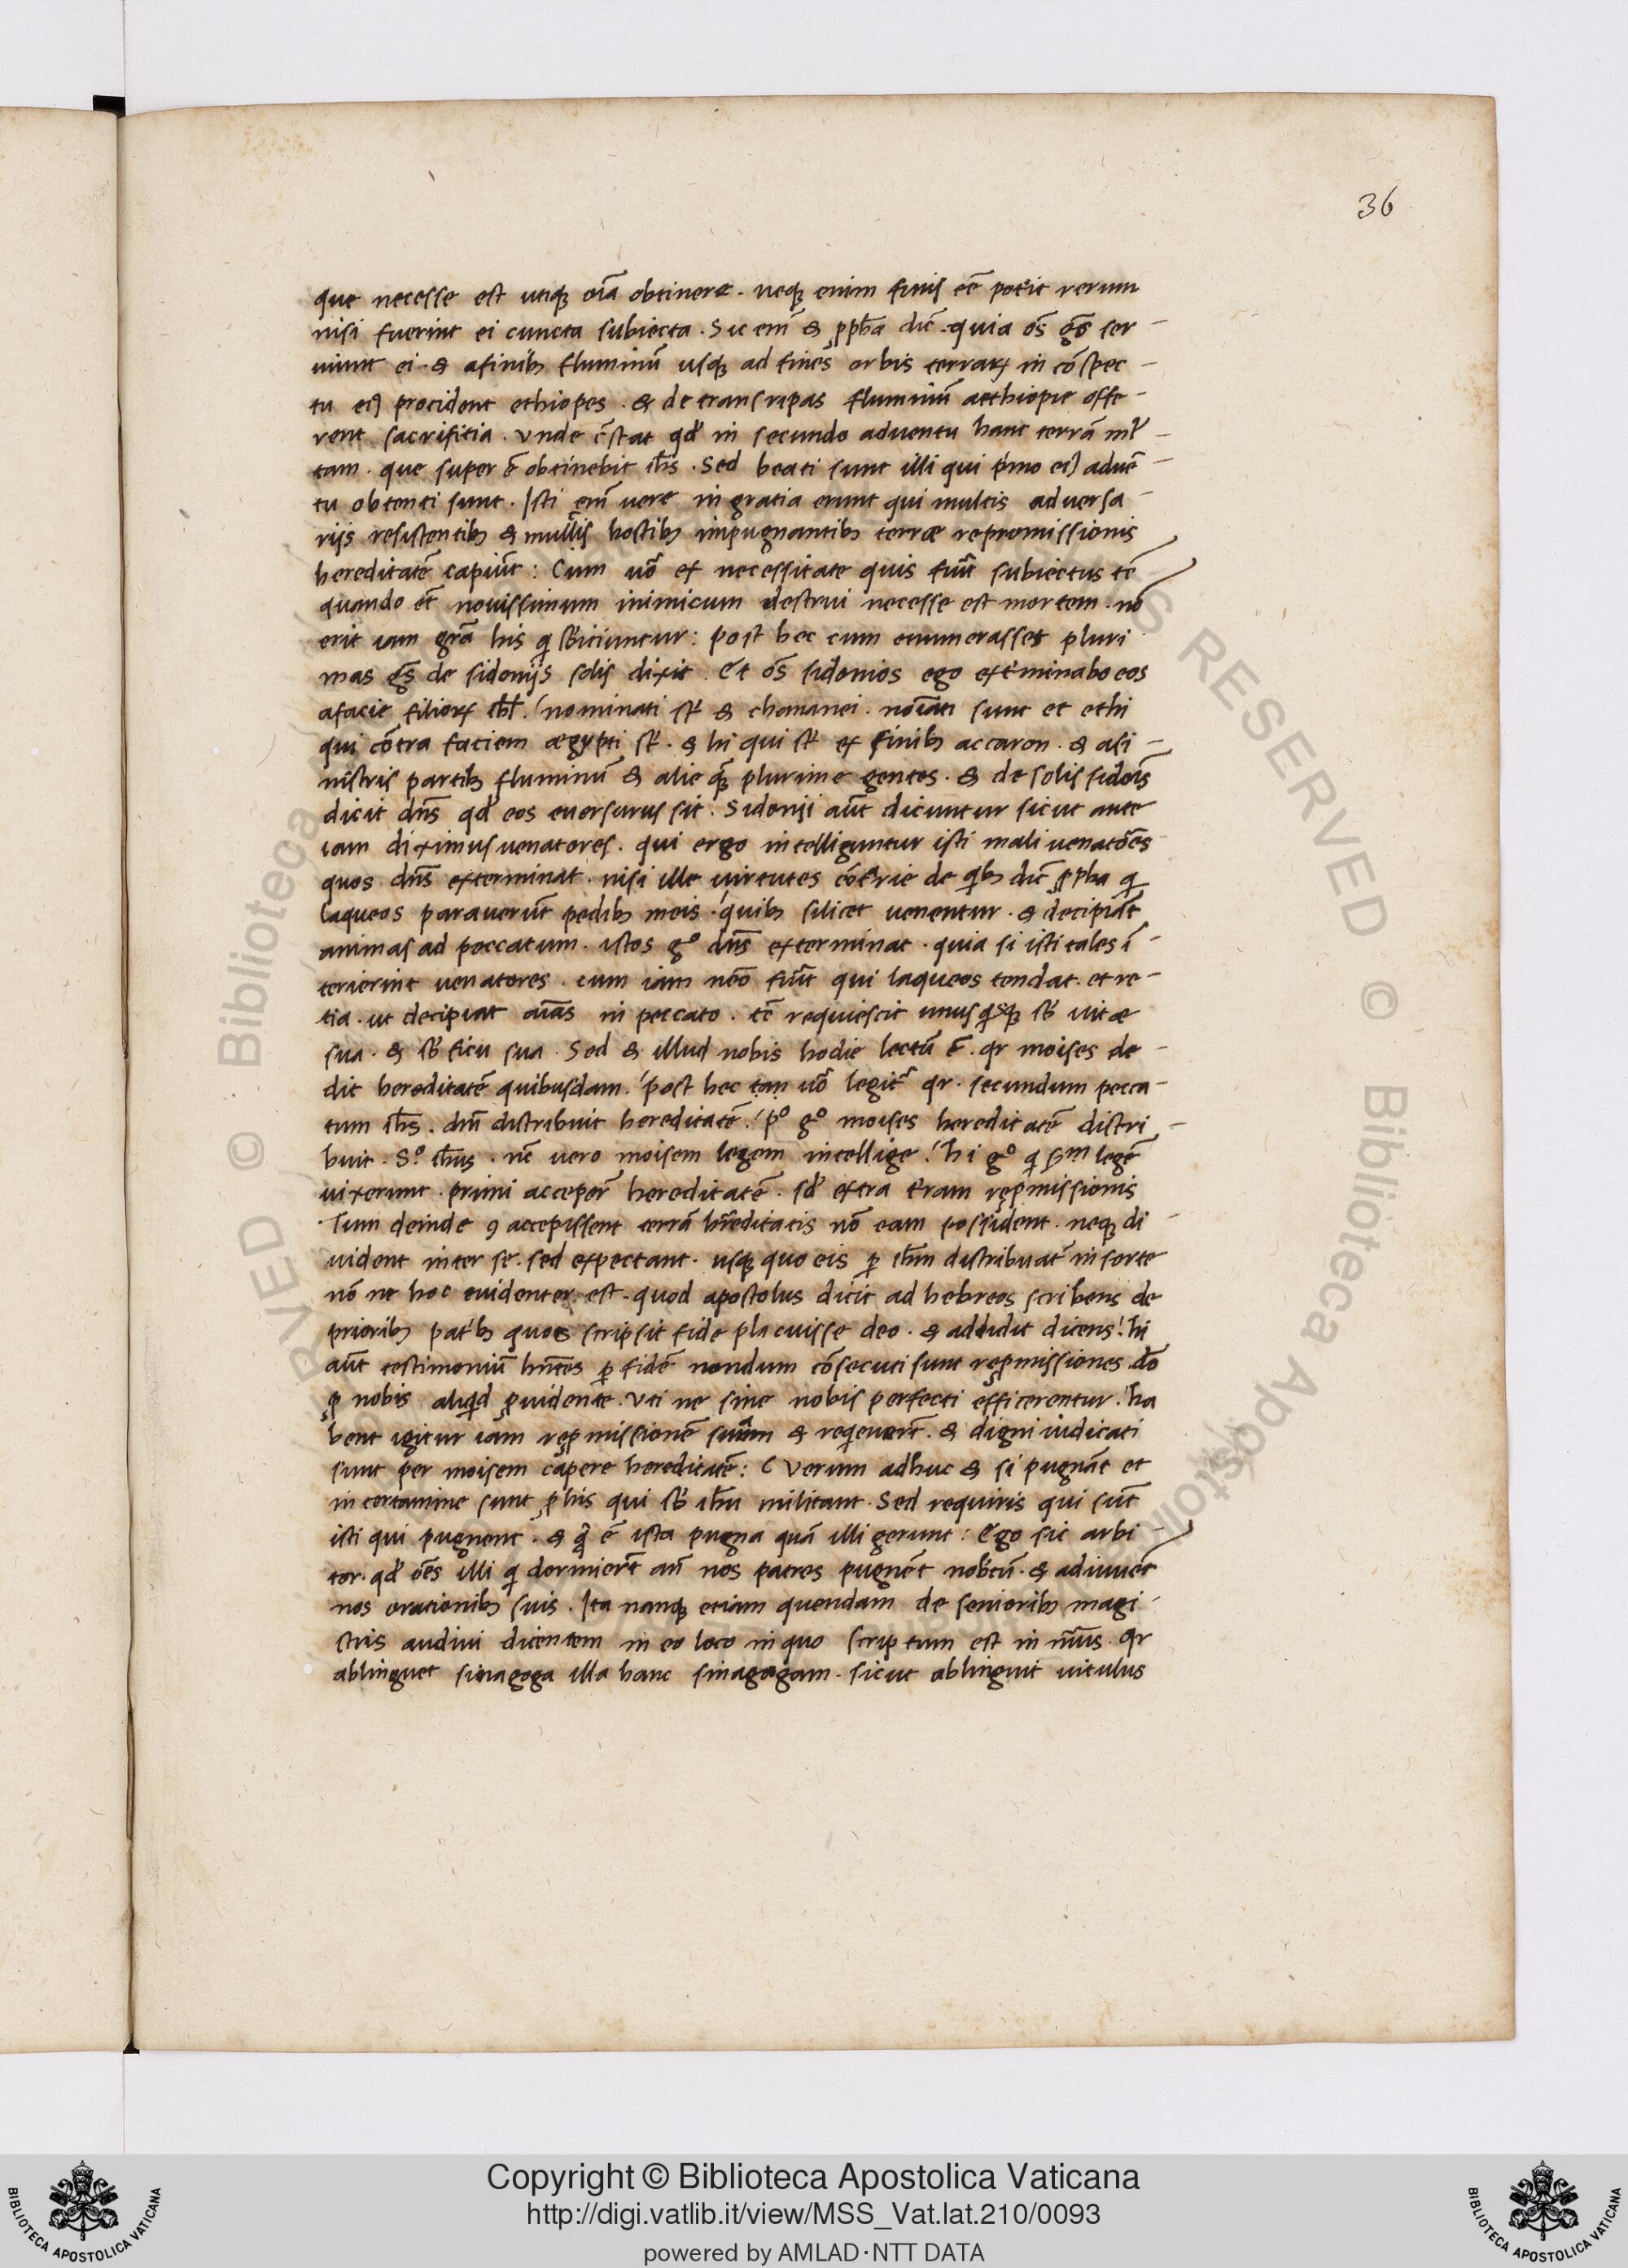 36
que necesse est utiqꝫ oı̃a obtinere. neqꝫ enim finis eẽ poťit rerum
nisi fuerint ei cuncta subiecta. Sic em̃ & ꝓpħa dic̃. quia oẽs gẽs ser-
uiunt ei. & afinibꝫ fluminũ usqꝫ ad fines orbis terraꝝ in cõspec-
tu eiꝰ procident ethiopes. & de trans ripas fluminũ aethiopie offe-
rent sacrifitia. Unde cõstat qđ in secundo aduentu hanc terrã ml̃-
tam. que super ẽ obtinebit ih̃s. Sed beati sunt illi qui p̃mo eiꝰ aduẽ-
tu obtenti sunt. Isti em̃ uere in gratia erunt qui multis aduersa-
rijs resistentibꝫ & multis hostibꝫ impugnantibꝫ terræ repromissionis
hereditatẽ capiũt: Cum uõ ex necessitate quis fuĩt subiectus tẽ
quando et̃ nouissimum inimicum destrui necesse est mortem. nõ
erit iam gr̃a his qi sb̃iciuntur: post hec cum enumerasset pluri
mas gẽs de sidonijs solis dixit. Et oẽs sidonios ego ext̃minabo eos
afacie filioꝝ isrl̃. nominati st̃ & chananei. noı̃ati sunt et ethi
qui cõtra faciem ægypti st̃. & hi qui st̃ ex finibꝫ accaron. & asi-
nistris partibꝫ fluminũ & alie quã plurime gentes. & de solis sidoı̃s
dicit dñs qđ eos euersurus sit. Sidonij aũt dicuntur sicut ante
iam diximus uenatores. qui ergo intelliguntur isti mali uenatões
quos dñs exterminat. nisi ille uirtutes cõtr̃rie de qibꝫ dic̃ ꝓpħa qi
laqueos parauerũt pedibꝫ meis. quibꝫ silicet uenentur. & decipiãt
animas ad peccatum. istos gº dñs exterminat. quia si isti tales ĩ-
terierint uenatores. cum iam nẽo fuĩt qui laqueos tendat. et re-
tia. ut decipiat aı̃as in peccato. tc̃ requiescit unusqisqꝫ sb̃ uitæ
sua. & sb̃ ficu sua. Sed & illud nobis hodie lectũ ẽ. qr moises de-
dit hereditatẽ quibusdam. post hec tan uõ legit̃ qr. secundum pecca-
tum ih̃s. dñi distribuit hereditatẽ. pº gº moises hereditatẽ distri-
buit. Sº ih̃us. nc̃ uero moisem legem intellige. hi gº qi sm̃ legẽ
uixerunt. primi acceper̃ hereditatẽ. sđ extra t̃ram reꝓmissionis
Tum deinde ꝯ accepissent terrã hr̃editatis nõ eam possident. neqꝫ di-
uident inter se. sed expectant. usqꝫ quo eis ꝑ ih̃m distribuat̃ in sorte
nõ ne hoc euidenter est. quod apostolus dicit ad hebreos scribens de
prioribꝫ pat̃bꝫ quos scripsit fide placuisse deo. & addidit dicens. hi
aũt testimoniũ hñtes ꝑ fidẽ nondum cõsecuti sunt reꝓmissiones dõ
ꝓ nobis aliqid ꝓuidente. Uti ne sine nobis perfecti efficerentur. ha
bent igitur iam reꝓmissionẽ suam & reqieuerı̃t. & digni iudicati
sunt per moisem capere hereditatẽ: Verum adhuc & si pugnãt et
in certamine sunt ꝓ his qui sb̃ ih̃u militant. Sed requiris qui sũt
isti qui pugnent. & q̃ ẽ ista pugna quã illi gerunt: Ego sic arbi-
tor. qđ oẽs illi qi dormierı̃t añ nos patres pugnẽt nobcũ. & adiuuẽt
nos orationibꝫ suis. Ita nanqꝫ etiam quendam de senioribꝫ magi-
stris audiui dicentem in eo loco in quo scriptum est in nũis. qr
ablinguet sinagoga illa hanc sinagogam. sicut ablinguit uitulus
Copyright © Biblioteca Apostolica Vaticana
http://digi.vatlib.it/view/MSS_Vat.lat.210/0093
powered by AMLAD·NTT DATA
BIBLIOTECA APOSTOLICA VATICANA
BIBLIOTECA APOSTOLICA VATICANA